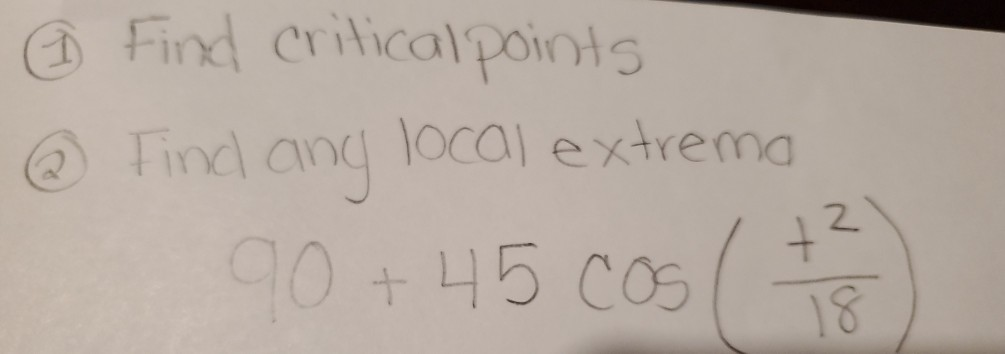 ① Find critical points
② Find any local extrema
90 + 45 cos (t²/18)